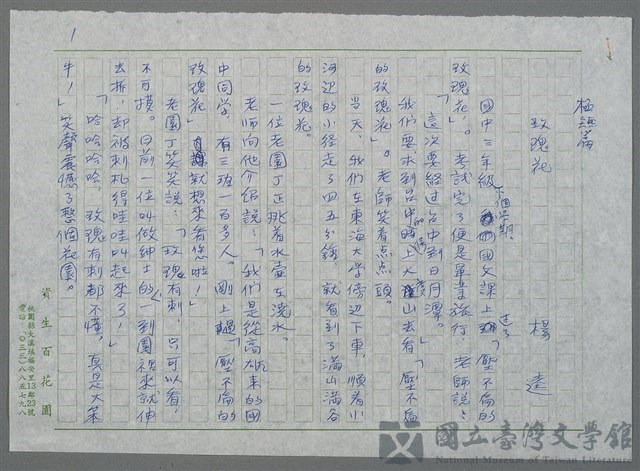 1
極短篇
玫瑰花
楊逵
國中三年級下個學期，國文課上過了「壓不倒的
玫瑰花」。考試完了便是畢業旅行，老師說：
「這次要經過台中到日月潭。」
我們要求到台中的時候上大度山去看「壓不倒
的玫瑰花」。老師笑着點点頭。
當天，我們在東海大學傍边下車，順着小
河边的小徑走了四五分鐘，就看到了滿山滿谷
的玫瑰花。
一位老園丁正挑着水壺在澆水。
老師向他介紹說：「我們是從高雄來的國
中同学，有三班一百多人。剛上過「壓不倒的
玫瑰花」就想來看您啦！」
老園丁笑笑說：「玫瑰有刺，只可以看，
不可摸。日前一位叫做紳士的，一到園裡來就伸
去折，却被刺札得哇哇叫起來了！」
「哈哈哈哈，玫瑰有刺都不懂，真是大笨
牛！」笑聲震憾了整個花園。
資生百花園
桃園縣大溪鎮福安里13鄰23號
電話：（〇三三）八八五七九八
國立臺灣文學館
National Museum of Taiwan Literature